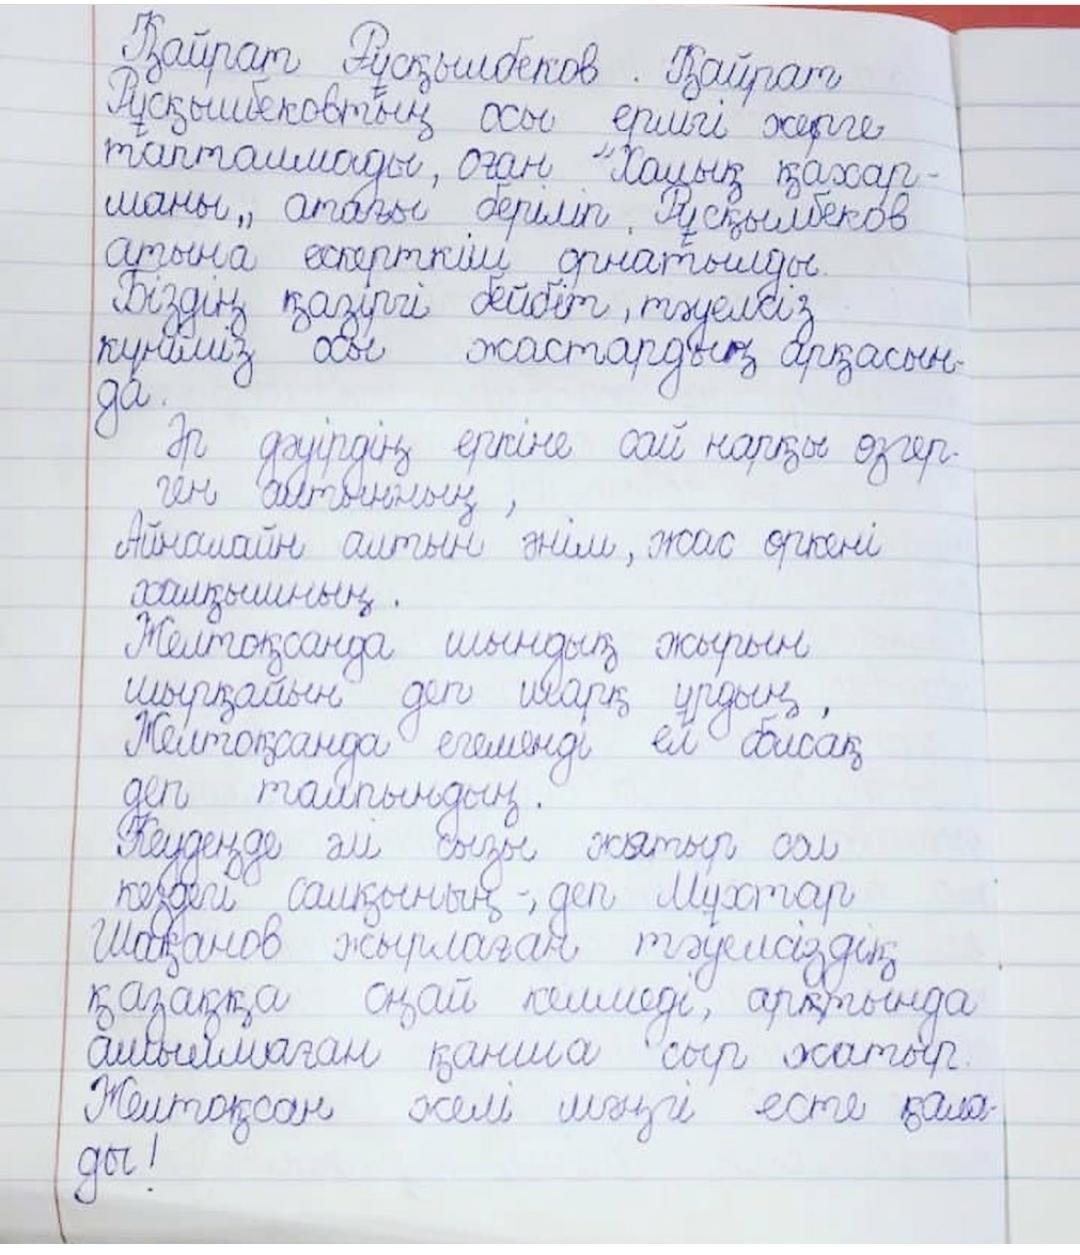 Қайрат Рұсқышбеков. Қайрат
Рұсқышбековтың осы ерлігі жерге
тапталмады, оған "Халық қахар-
маны„ атағы беріліп, Рұсқылбеков
атына ескерткіш орнатылды.
Біздің қазіргі бейбіт, тәуелсіз
күніміз осы жастардың арқасын-
да.
Әр дәуірдің еркіне сай нарқы өзгер-
ген алтынның,
Айналайн алтын інім, жас өркені
халқымның.
Желтоқсанда шындық жырын
шырқайын деп шарқ ұрдың,
Желтоқсанда егеменді ел болсақ
деп талпындың.
Кеуденде әлі сызы жатыр сол
кездегі салқының-, деп Мұхтар
Шаханов жырлаған тәуелсіздік
қазаққа оңай келмеді, артында
ашылмаған қанша сыр жатыр.
Желтоқсан желі мәңгі есте қала-
ды!